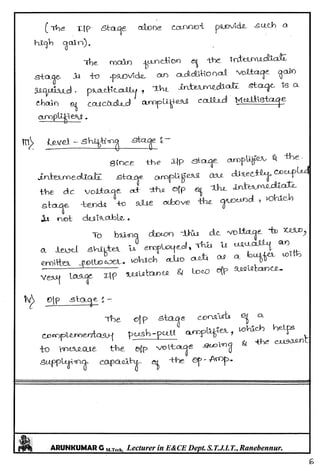 (The I/P stage alone cannot provide such a
high gain).
The main function of the Intermediate
stage is to provide an additional voltage gain
required. practically, The intermediate stage is a
chain of cascaded amplifiers called Multistage
amplifiers.
III) Level-shifting stage :-
Since the I/P stage amplifier & the
intermediate stage amplifiers are directly coupled
the dc voltage at the o/p of the intermediate
stage tends to rise above the ground, which
is not desirable.
To bring down this dc voltage to zero,
a level shifter is employed, This is usually an
emitter follower. which also acts as a buffer with
very large I/P resistance & low o/p resistance.
IV) o/p stage :-
The o/p stage consists of a
complementary push-pull amplifier, which helps
to increase the o/p voltage swing & the current
supplying capacity of the op-Amp.
ARUNKUMAR G M.Tech, Lecturer in E&CE Dept. S.T.J.I.T., Ranebennur.
6